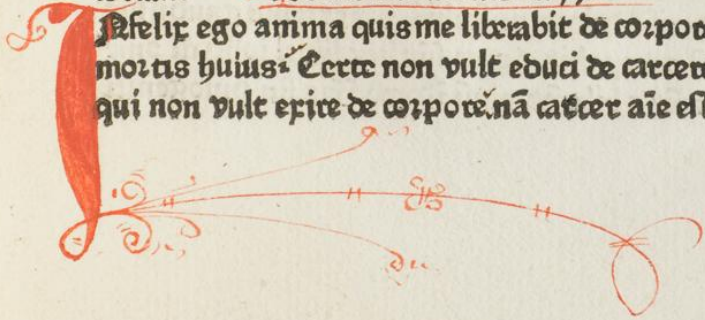 INfelix ego anima quis me liberabit de corpor
mortis huius: Certe non vult educi de carcere
qui non vult exire de corpore. nã carcer aĩe est